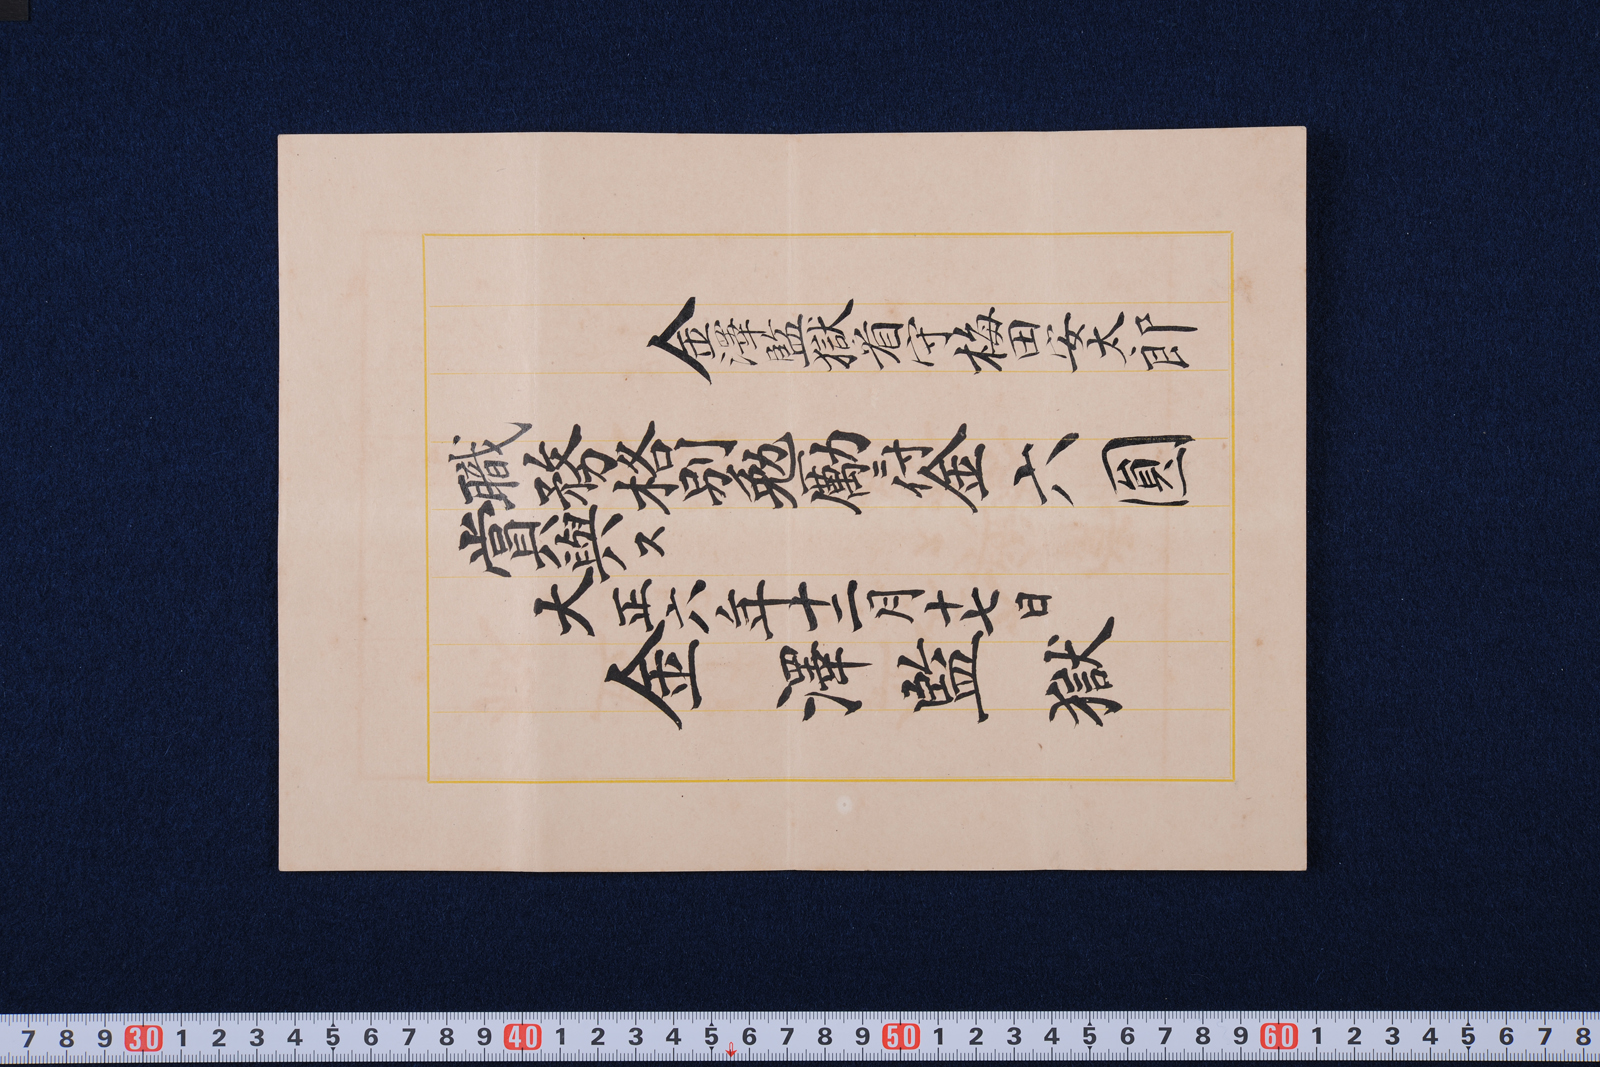 金澤監獄看守梅田安太郎
職務格別勉勵ニ付金六圓
賞與ス
大正六年十二月十七日
金澤監獄
7 8 9 30 1 2 3 4 5 6 7 8 9 40 1 2 3 4 5 6 7 8 9 50 1 2 3 4 5 6 7 8 9 60 1 2 3 4 5 6 7 8